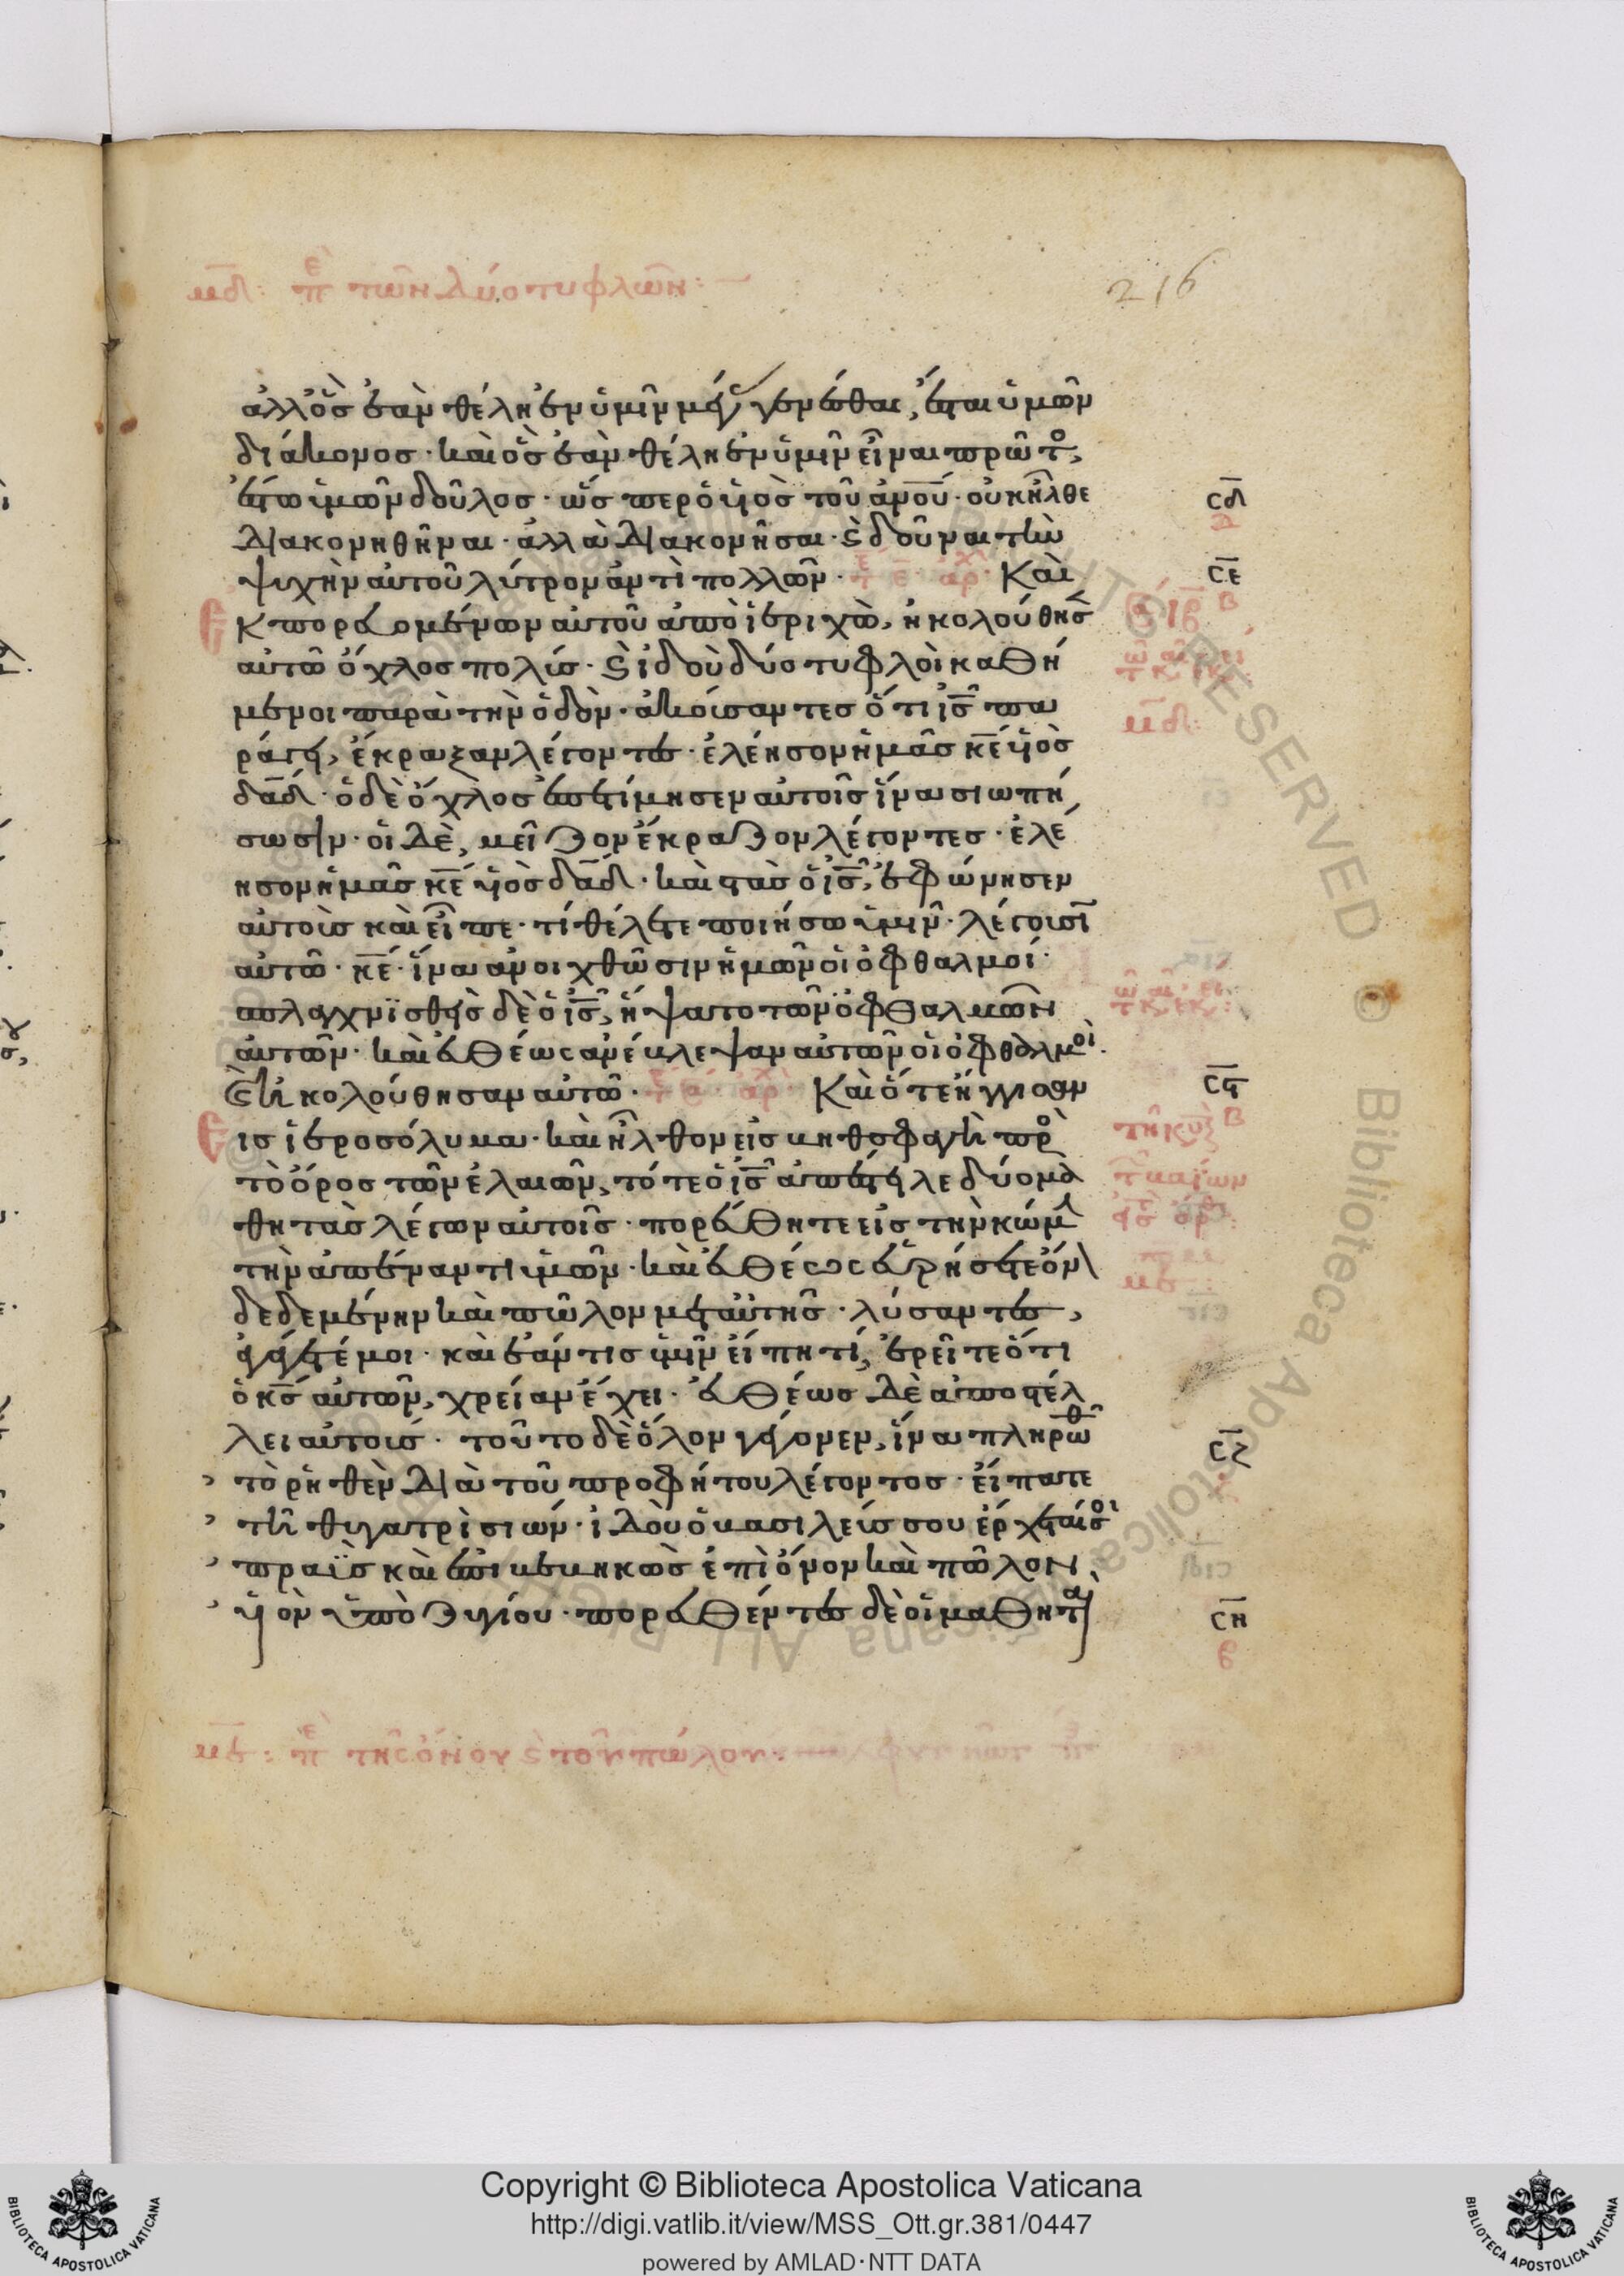 μδ: πε τῶν δύο τυφλῶν:
216
ἀλλ' ὃς ἐὰν θέλη ἐν ὑμῖν μέγας γενέσθαι, ἔσται ὑμῶν
διάκονος· καὶ ὃς ἐὰν θέλη ἐν ὑμῖν εἶναι πρῶτο,
ἔστω ὑμῶν δοῦλος· ὥσπερ ὁ υἱὸς τοῦ ἀνου· οὐκ ἦλθε
διακονηθῆναι· ἀλλὰ διακονῆσαι· ϗ δοῦναι τὴν
ψυχὴν αὐτοῦ λύτρον ἀντὶ πολλῶν· Καὶ
Ἐκπορευομένων αὐτοῦ ἀπὸ ἱεριχὼ, ἠκολούθησε
αὐτῶ ὄχλος πολύς· ϗ ἰδοὺ δύο τυφλοὶ καθή
μενοι παρὰ τὴν ὁδὸν· ἀκούσαντες ὅτι ις πα
ράγει, ἔκραξαν λέγοντες· ἐλέησον ἡμᾶς κε υἱὸς
δαδ· ὁ δὲ ὄχλος ἐπετίμησεν αὐτοῖς ἵνα σιωπή
σωσιν· οἱ δὲ, μεῖζον ἔκραζον λέγοντες· ἐλέ
ησον ἡμᾶς κε υἱὸς δαδ· καὶ στὰς ὁ ις, ἐφώνησεν
αὐτοὺς καὶ εἶπε· τί θέλετε ποιήσω ὑμῖν· λέγουσι
αὐτῶ· κε· ἵνα ἀνοιχθῶσιν ἡμῶν οἱ ὀφθαλμοί·
σπλαγχνισθεὶς δὲ ὁ ις, ἥψατο τῶν ὀφθαλμῶν
αὐτῶν· καὶ εὐθέως ἀνέβλεψαν αὐτῶν οἱ ὀφθαλμοὶ·
ϗ ἠκολούθησαν αὐτῶ· Καὶ ὅτε ἤγγισαν
Εἰς ἱεροσόλυμα· καὶ ἦλθον εἰς βηθσφαγὴ πρὸ
τὸ ὄρος τῶν ἐλαιῶν, τότε ὁ ις ἀπέστειλε δύο μα
θητὰς λέγων αὐτοῖς· πορεύθητε εἰς τὴν κώμ
τὴν ἀπέναντι ὑμῶν· καὶ εὐθέως εὑρήσετε ὄν
δεδεμένην καὶ πῶλον μετ' αὐτῆς· λύσαντες,
ἀγάγετέ μοι· καὶ ἐάν τις ὑμῖν εἴπη τί, ἐρεῖτε ὅτι
ὁ κς αὐτῶν, χρείαν ἔχει· εὐθέως δὲ ἀποστέλ
λει αὐτούς· τοῦτο δὲ ὅλον γέγονεν, ἵνα πληρωθῆ
τὸ ῥηθὲν διὰ τοῦ προφήτου λέγοντος· εἴπατε
τῆ θυγατρὶ σιών· ἰδοὺ ὁ βασιλεύς σου ἔρχεταί σοι
πραῢς καὶ ἐπιβεβηκὼς ἐπὶ ὄνον καὶ πῶλον
υἱὸν ὑποζυγίου· πορευθέντες δὲ οἱ μαθηταὶ
σδ
σε
μδ:
σϛ
με:
σζ
ση
με: πε τῆς ὄνου ϗ τοῦ πώλου:
Copyright © Biblioteca Apostolica Vaticana
http://digi.vatlib.it/view/MSS_Ott.gr.381/0447
powered by AMLAD·NTT DATA
BIBLIOTECA APOSTOLICA VATICANA
BIBLIOTECA APOSTOLICA VATICANA